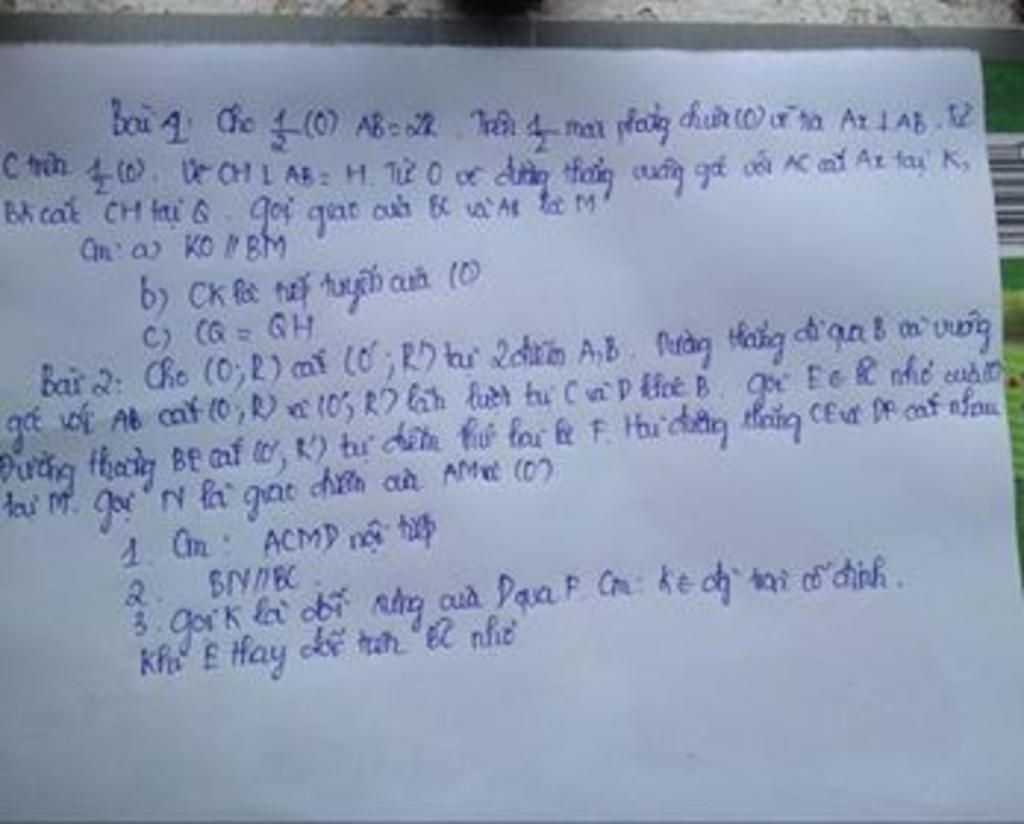 Bài 1: Cho 1/2 (O) AB = 2R. Trên 1/2 mặt phẳng chứa (O) vẽ tia Ax ⊥ AB. Từ
C trên 1/2 (O). Vẽ CH ⊥ AB = H. Từ O vẽ đường thẳng vuông góc với AC cắt Ax tại K,
BK cắt CH tại Q. Gọi giao của BC và Ax là M
Cm: a) KO // BM
b) CK là tiếp tuyến của (O)
c) CQ = QH
Bài 2: Cho (O; R) cắt (O'; R') tại 2 điểm A, B. Đường thẳng đi qua B và vuông
góc với AB cắt (O; R) và (O'; R') lần lượt tại C và D khác B. Gọi E ∈ BC nhỏ của (O)
Đường thẳng BE cắt (O'; R') tại điểm thứ hai là F. Hai đường thẳng CE và DF cắt nhau
tại M. Gọi N là giao điểm của AM và (O')
1. Cm: ACMD nội tiếp
2. BN // BC
3. Gọi K là đối xứng của D qua F. Cm: K ∈ cố định.
Khi E thay đổi trên BC nhỏ